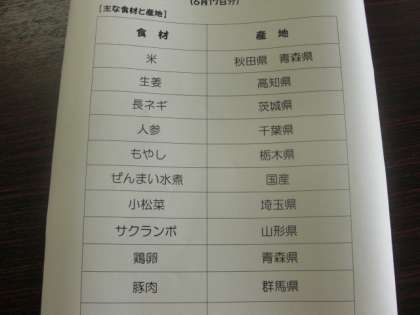 (6月17日分)
【主な食材と産地】
食材 産地
米 秋田県 青森県
生姜 高知県
長ネギ 茨城県
人参 千葉県
もやし 栃木県
ぜんまい水煮 国産
小松菜 埼玉県
サクランボ 山形県
鶏卵 青森県
豚肉 群馬県